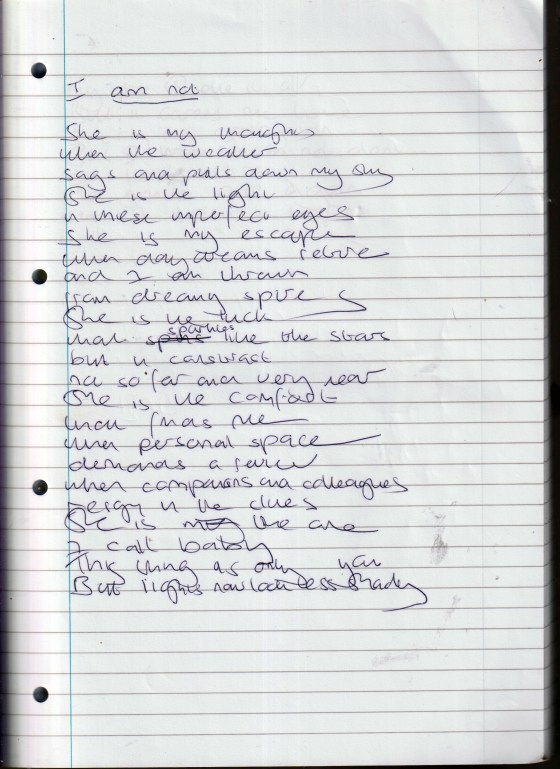 I am not
She is my
when the weather
sags and pulls down my sky
She is the light
in these imperfect eyes
She is my escape
when daydreams retire
and I am thrown
from dreamy spire
She is the luck
that sparkles like the stars
but in contrast
not so far and very near
She is the comfort
that finds me
when personal space
demands a review
when companions and colleagues
in the clues
She is the one
I call baby
This thing as only you
But lights now less shady